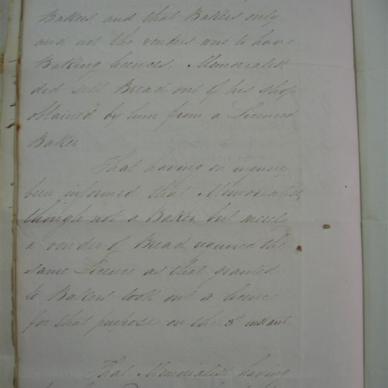 Bakers and that Bakers only
and not the venders was to have
Baking licences. Memorialist
did sell Bread out of his shop
obtained by him from a Licenced
Baker
That having on
been informed that Memorialist,
though not a Baker but merely
a vender of Bread, required the
same Licence as that granted
to Bakers took out a licence
for that purpose on the 3d instant
That Memorialist having